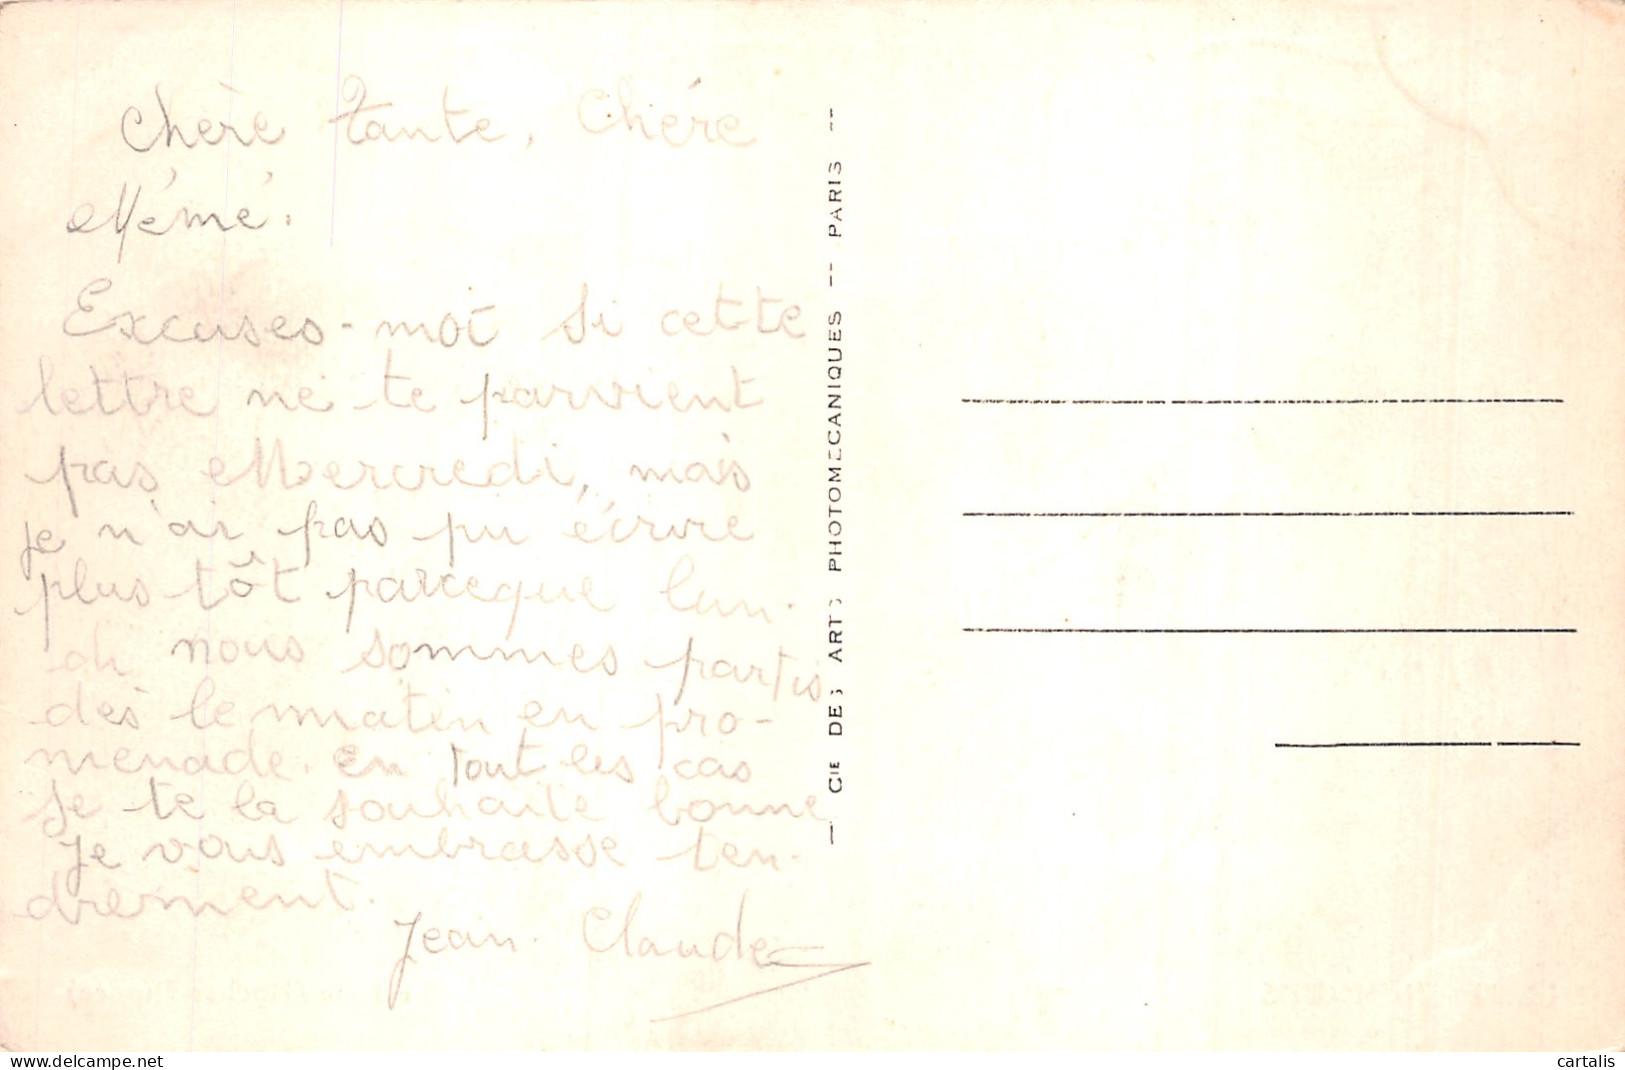 Chère tante, Chére
Mémé.
Excuses-moi si cette
lettre ne te parvient
pas Mercredi, mais
je n'ai pas pu écrire
plus tôt parceque lun-
di nous sommes partis
dès le matin en pro-
menade. En tout les cas
je te la souhaite bonne
Je vous embrasse ten-
drement.
Jean-Claude
— CIE DES ARTS PHOTOMECANIQUES -- PARIS --
delcampe.net
cartalis